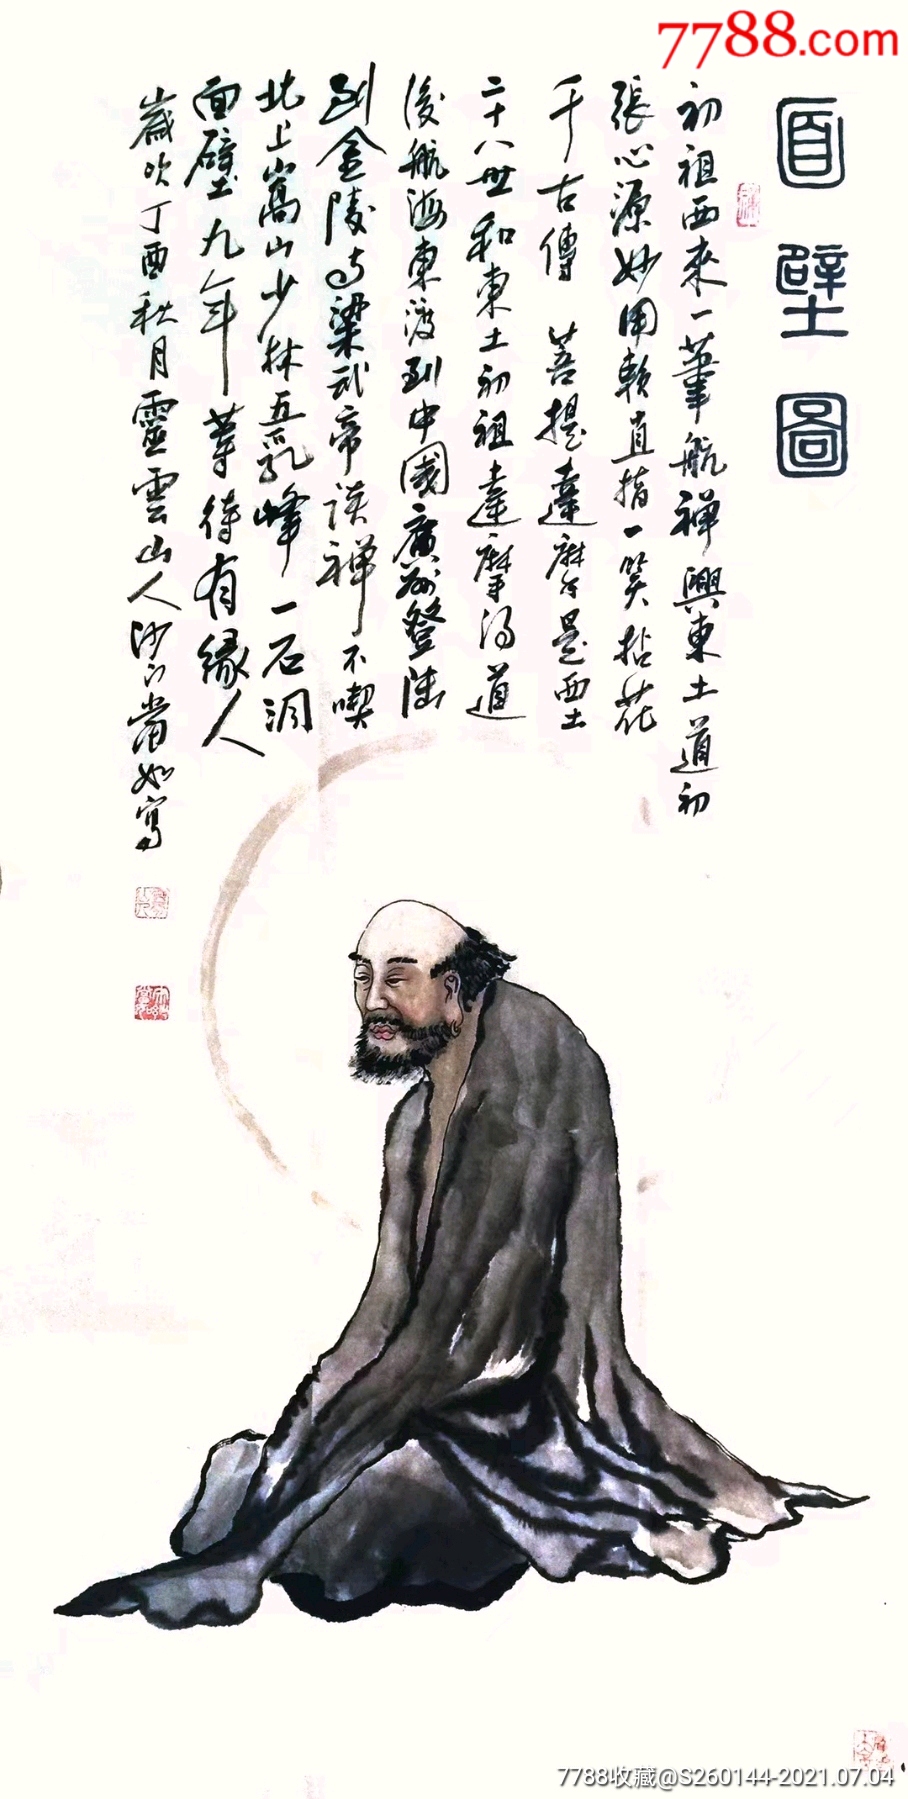 7788.com
面壁圖
初祖西來一葦航禅興東土道初
張心源妙用賴直指一笑拈花
千古傳 菩提達摩是西土
二十八世和東土初祖達摩得道
後航海東渡到中國廣州登陸
到金陵与梁武帝談禅不喫
北上嵩山少林五乳峰一石洞
面壁九年等待有緣人
歲次丁酉秋月靈雲山人沙门常如寫
7788收藏@S260144-2021.07.04